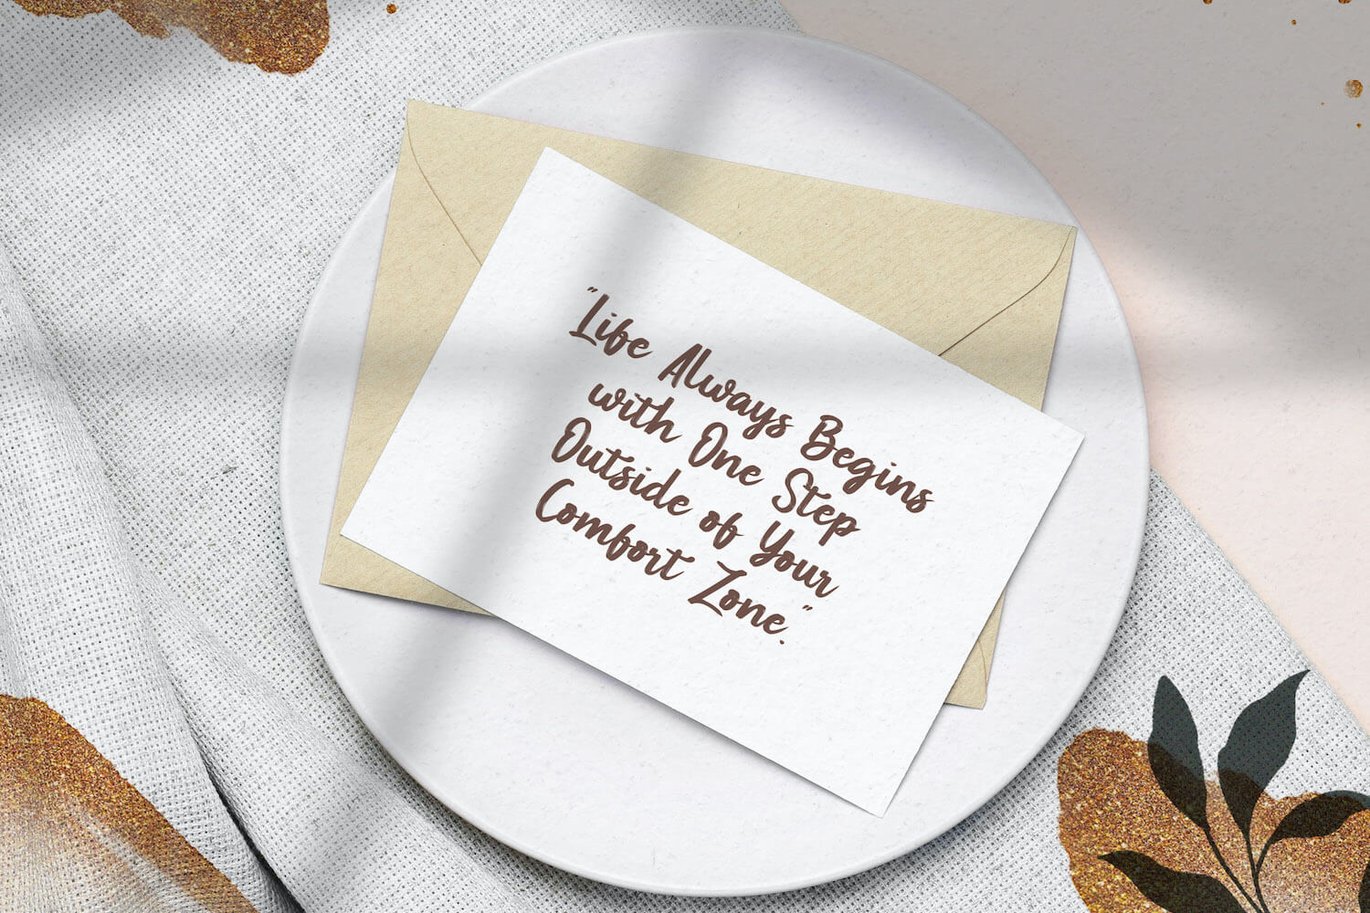 "Life Always Begins
with One Step
Outside of Your
Comfort Zone."